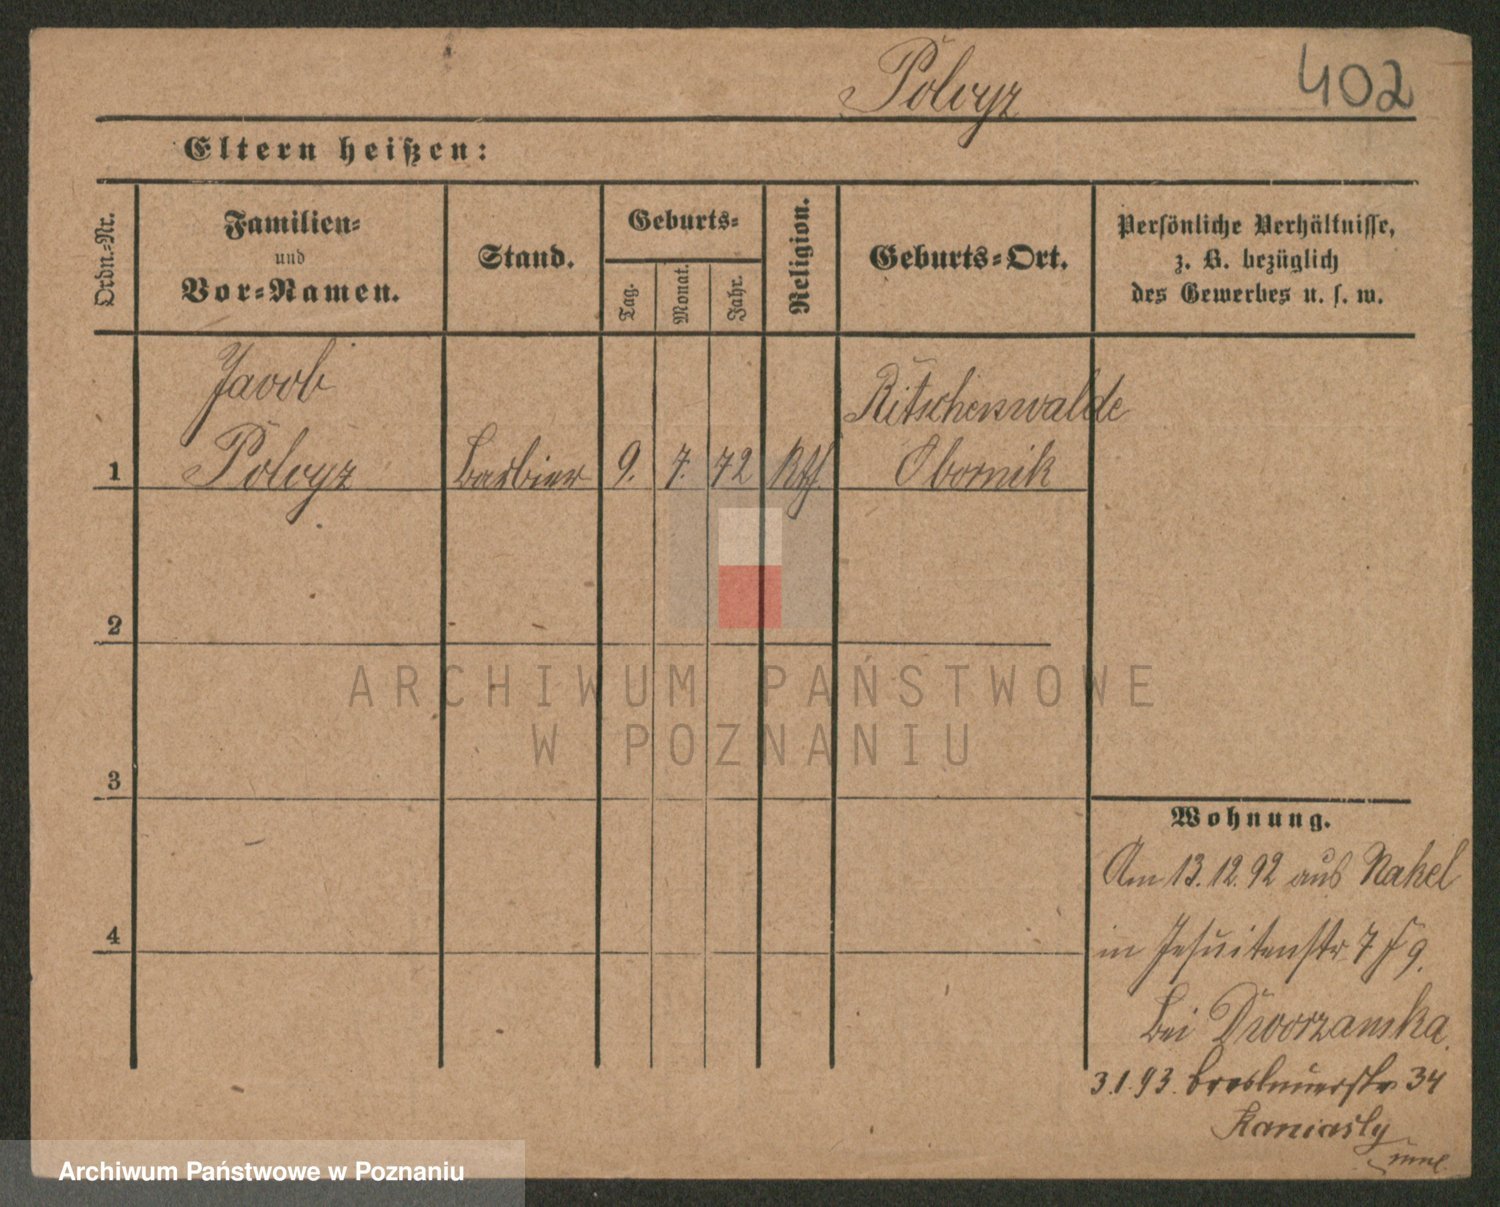 Polcyz 402
Eltern heißen:
Ordn.-Nr.
Familien-
und
Vor-Namen.
Stand.
Geburts-
Tag.
Monat.
Jahr.
Religion.
Geburts-Ort.
Persönliche Verhältnisse,
z. B. bezüglich
des Gewerbes u. s. w.
Jacob Ritschenwalde
1 Polcyz Barbier 9. 7. 72 Kth. Obornik
2
ARCHIWUM PAŃSTWOWE
W POZNANIU
3
Wohnung.
Am 13.12.92 aus Nakel
4
in Jesuitenstr 7 9.
bei Dworzanska
3.1.93. Breslauerstr 34
Archiwum Państwowe w Poznaniu